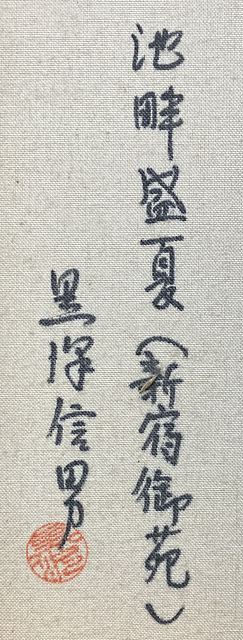 池畔盛夏(新宿御苑)
黒澤信男